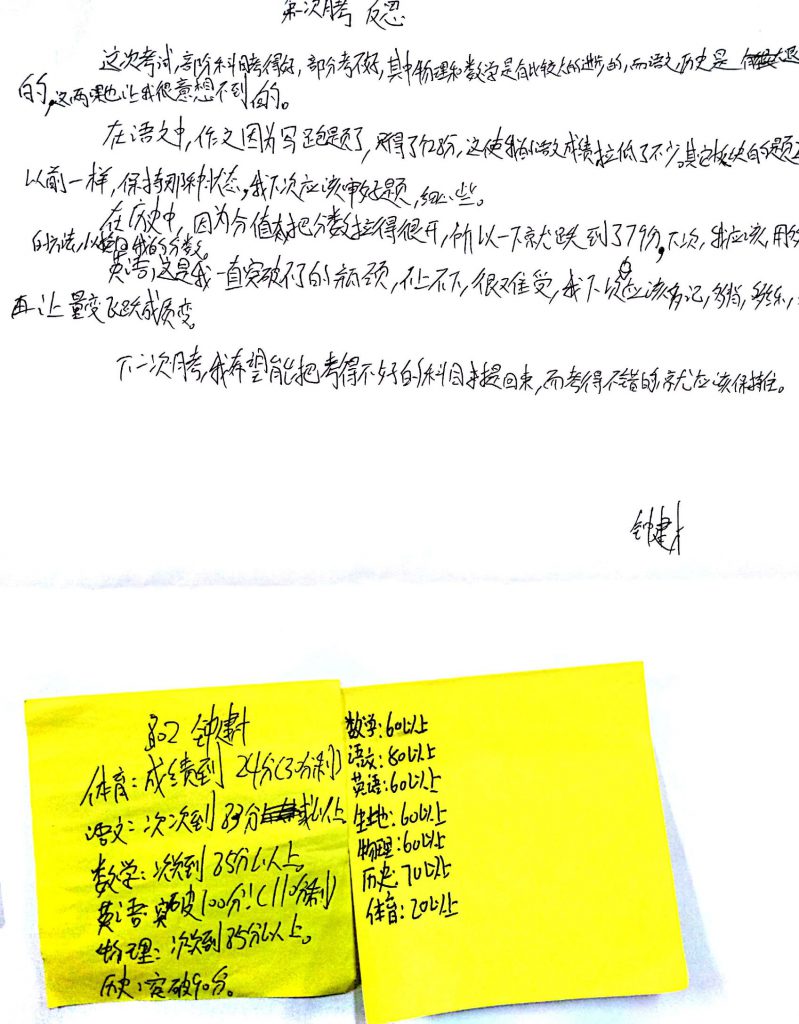 第一次月考 反思
这次考试,部分科目考得好,部分考不好,其中物理和数学是有比较大的进步的,而语文,历史是
的,这两课也让我很意想不到的。
在语文中,作文因为写跑题了,只得了28分,这使我的语文成绩拉低了不少。其它板块的题
以前一样,保持那种状态,我下次应该审好题,细心些。
在历史中,因为分值太把分数拉得很开,所以一下就跌到了79分,下次,我应该,用
的方法,以我的分数。
英语,这是我一直突破不了的瓶颈,不上不下,很难受,我下次应该多记,多背,多练,
再让量变飞跃成质变。
下一次月考,我希望能把考得不好的科目提回来,而考得不错的就应该保持住。
钟建
钟建
体育:成绩到24分(30分制)
语文:次次到83分或以上
数学:次次到85分以上。
英语:突破100分!(110分制)
物理:次次到85分以上。
历史:突破90分。
数学:60以上
语文:80以上
英语:60以上
生地:60以上
物理:60以上
历史:70以上
体育:20以上